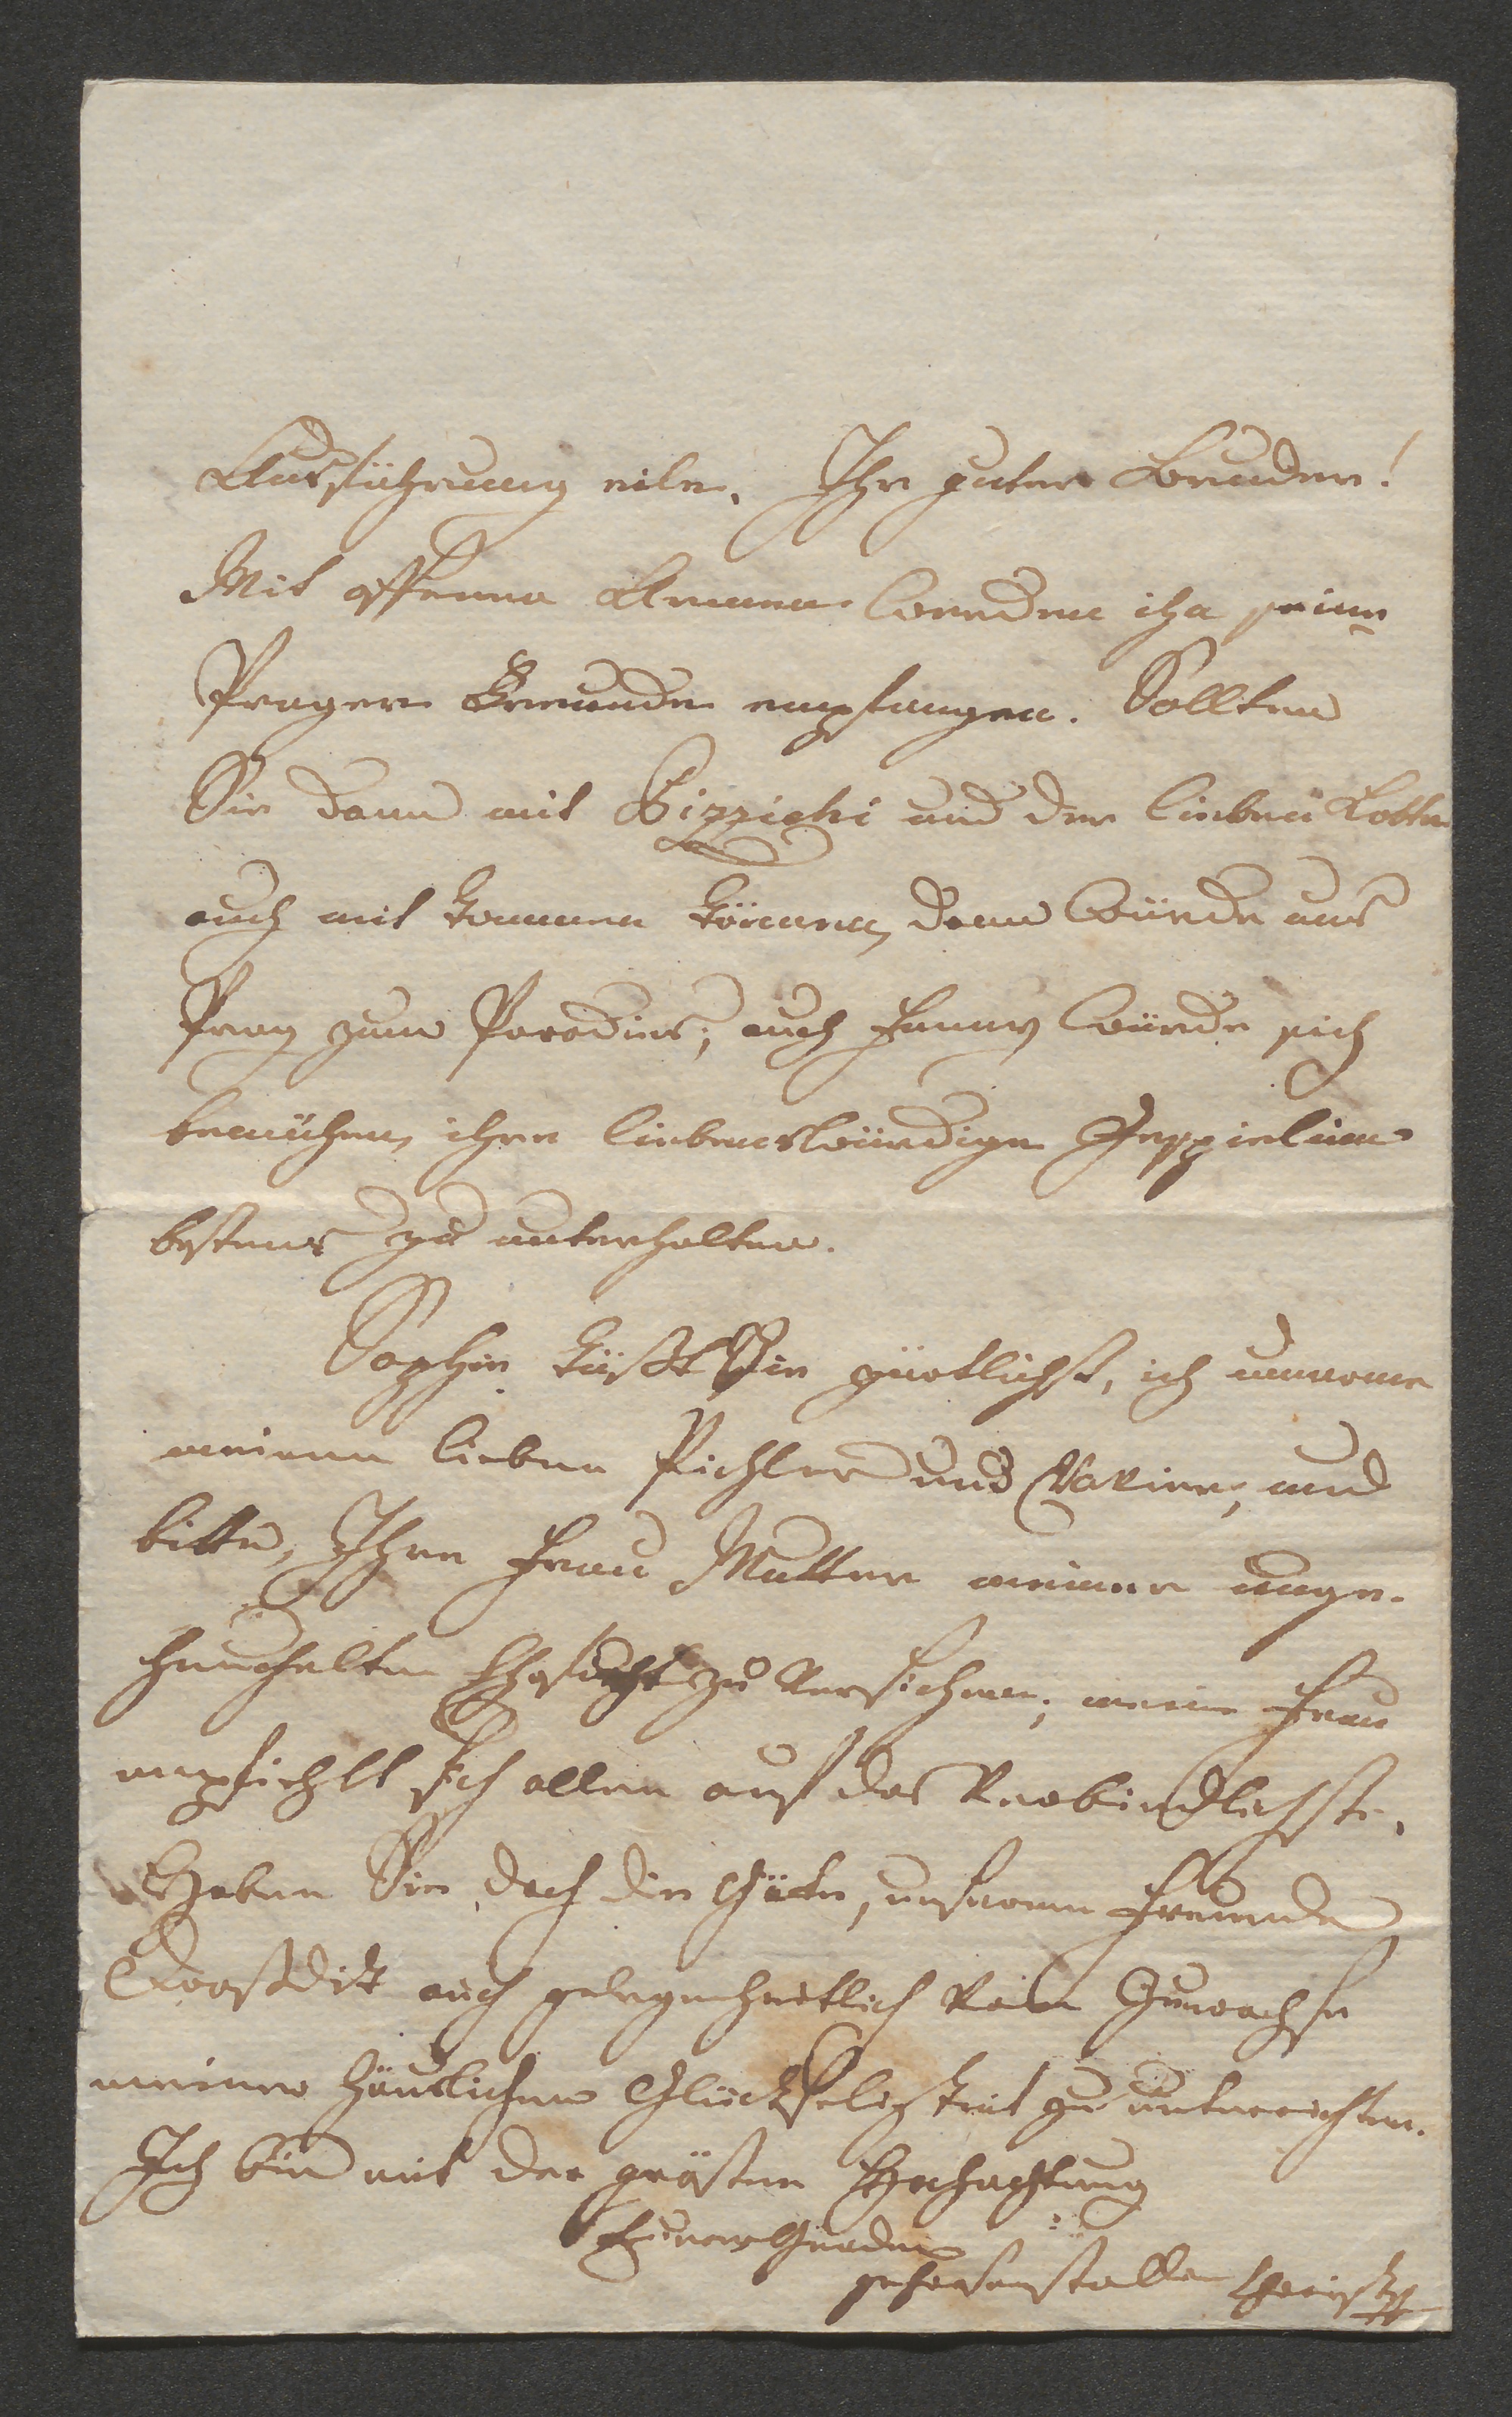 Ausführung eile. Ihr guter Bruder!
Mit offenen Armen werden ihn seine
Prager Freunde empfangen. Sollten
Sie dann mit Bizzichi und der lieben Lotte
auch mit kommen können, dann würde uns
Prag zum Paradies; auch Fanny würde sich
bemühen, ihre liebenswürdige Gespielinn
bestens zu unterhalten.
Sophie küßt Sie zärtlichst, ich umarme
meinen lieben Pichler und Xavier, und
bitte, Ihre Frau Mutter meiner unge-
heuchelten Ehrfurcht zu versichern; meine Frau
empfiehlt sich allen auf das Verbindlichste.
Haben Sie doch die Güte, unserem Freunde
auch gelegenheitlich vom Zuwachse
meiner häuslichen Glückseligkeit zu unterrichten.
Ich bin mit der größten Hochachtung
Euer Gnaden
gehorsamster